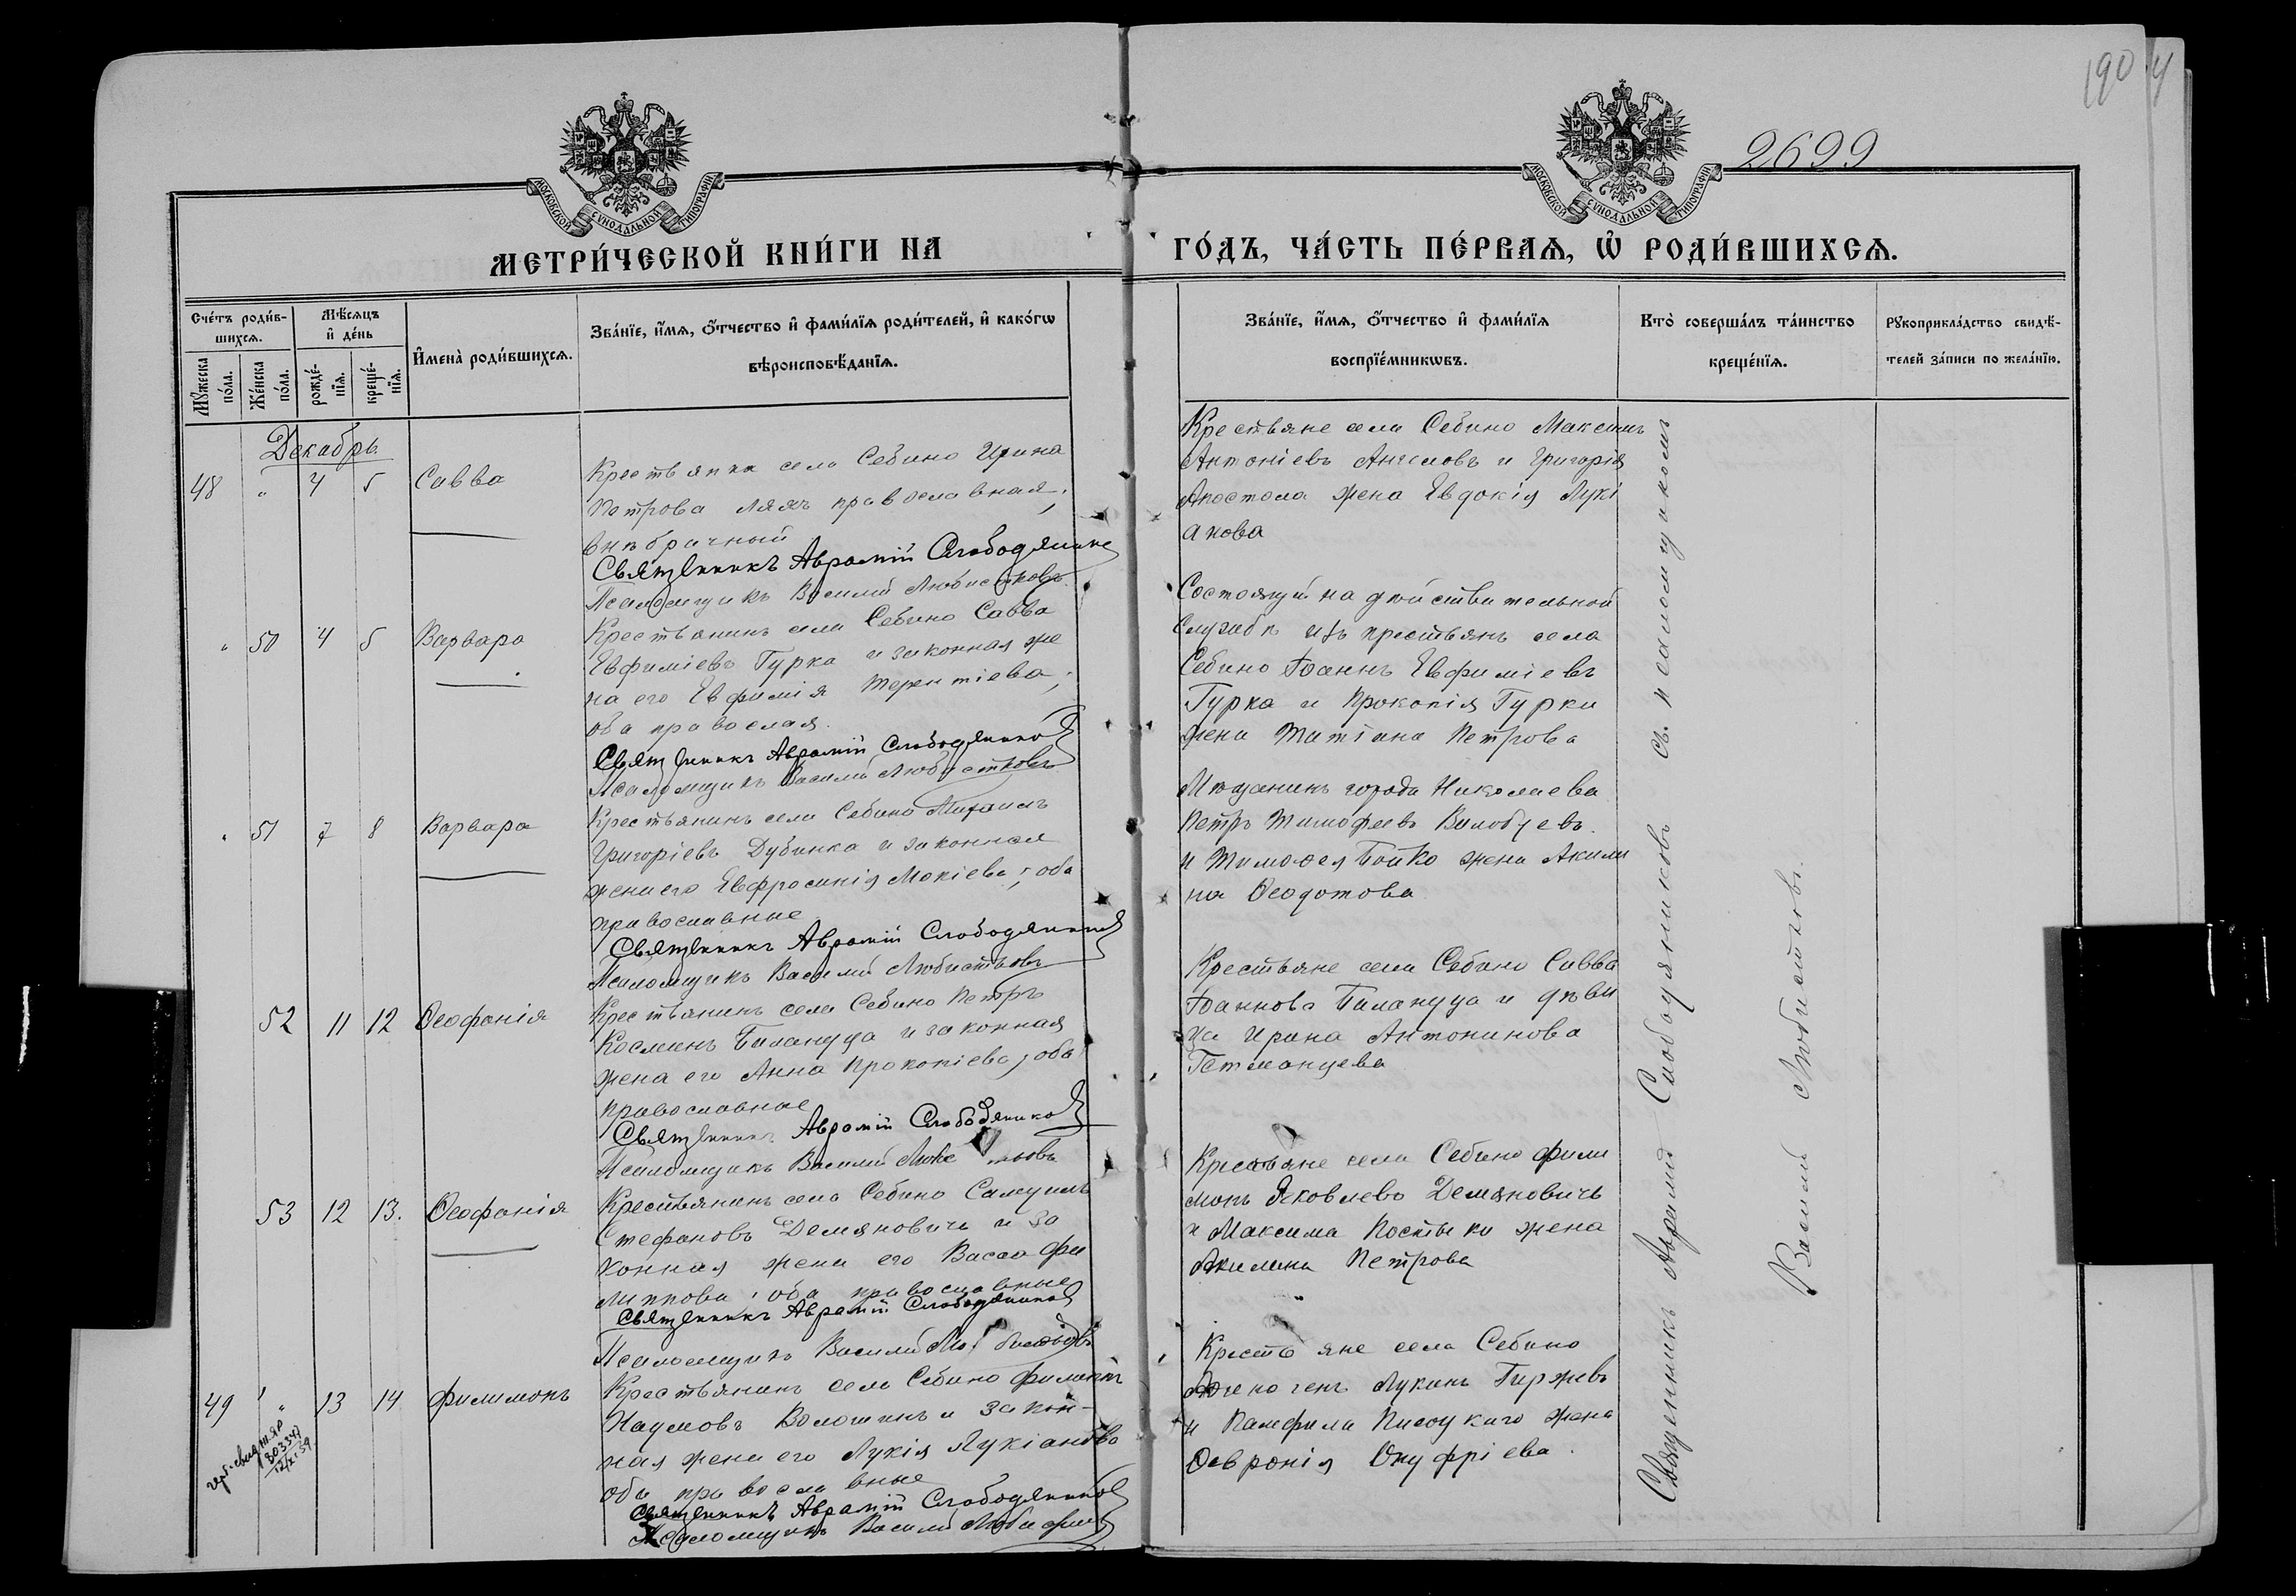 1904
2699
МОСКОВСКОЙ СУНОДАЛЬНОЙ ТИПОГРАФІИ
МОСКОВСКОЙ СУНОДАЛЬНОЙ ТИПОГРАФІИ
МЕТРИ́ЧЕСКОЙ КНИ́ГИ НА
ГО́ДЪ, ЧА́СТЬ ПЕ́РВАѦ, Ѡ҆ РОДИ́ВШИХСѦ.
Сче́тъ роди́в-
шихсѧ.
Мѣ́сѧцъ
и҆ де́нь
Мꙋ́жеска
по́ла.
Же́нска
по́ла.
рожде́-
нїѧ.
креще́-
нїѧ.
И҆мена̀ роди́вшихсѧ.
Зва́нїе, и҆́мѧ, ѻ҆́тчество и҆ фами́лїѧ роди́телей, и҆ како́гѡ
вѣроисповѣ́данїѧ.
Зва́нїе, и҆́мѧ, ѻ҆́тчество и҆ фами́лїѧ
воспрїе́мникѡвъ.
Кто̀ соверша́лъ та́инство
креще́нїѧ.
Рꙋкоприкла́дство свидѣ́-
телей за́писи по жела́нїю.
Декабрь
48 " 4 5 Савва
Крестьянка села Себино Ирина
Петрова Ляхъ православная;
внѣбрачный
Священникъ Аврамій Слободяниковъ
Псаломщикъ Василій Любистковъ
Крестьяне села Себино Максимъ
Антоніевъ и Григорія
Апостола жена Евдокія Лукі
анова
" 50 4 5 Варвара
Крестьянинъ села Себино Савва
Евфиміевъ Гурка и законная же
на его Евфимія Терентіева;
оба правослая.
Священникъ Аврамій Слободяниковъ
Псаломщикъ Василій Любистковъ
Состоящій на дѣйствительной
службѣ изъ крестьянъ села
Себино Іоаннъ Евфиміевъ
Гурка и Прокопія Гурки
жена Татіана Петрова
" 51 7 8 Варвара
Крестьянинъ села Себино Михаилъ
Григоріевъ Дубинка и законная
жена его Евфросинія Мокіева; оба
православные
Священникъ Аврамій Слободяниковъ
Псаломщикъ Василій Любистковъ
Мѣщанинъ города Николаева
Петръ Тимофеевъ
и Тимоѳея Бойко жена Акили
на Ѳеодотова
52 11 12 Ѳеофанія
Крестьянинъ села Себино Петръ
Косминъ Баландуда и законная
жена его Анна Прокопіева; оба
православные
Священникъ Аврамій Слободяниковъ
Псаломщикъ Василій
Крестьяне села Себино Савва
Іоанновъ и дѣви
ца Ирина Антонинова
Гетманцева
53 12 13. Ѳеофанія
Крестьянинъ села Себино Самуилъ
Стефановъ Демяновичъ и за
конная жена его Васса Фи
липпова; оба православные
Священникъ Аврамій Слободяниковъ
Псаломщикъ Василій Любистковъ
Крестьяне села Себино Фили
монъ Яковлевъ Демяновичъ
и Максима Костыки жена
Акилина Петрова
49 " 13 14 Филимонъ
803347
Крестьянинъ села Себино Филиппъ
Наумовъ Волошинъ и закон-
ная жена его Лукія Лукіанова
оба православные
Священникъ Аврамій Слободяниковъ
Псаломщикъ Василій Любистковъ
Крестьяне села Себино
Лукинъ Гиржевъ
и Памфила жена
Ѳевронія Онуфріева.
Священникъ Аврамій Слободяниковъ съ псаломщикомъ
Василій Любистковъ.